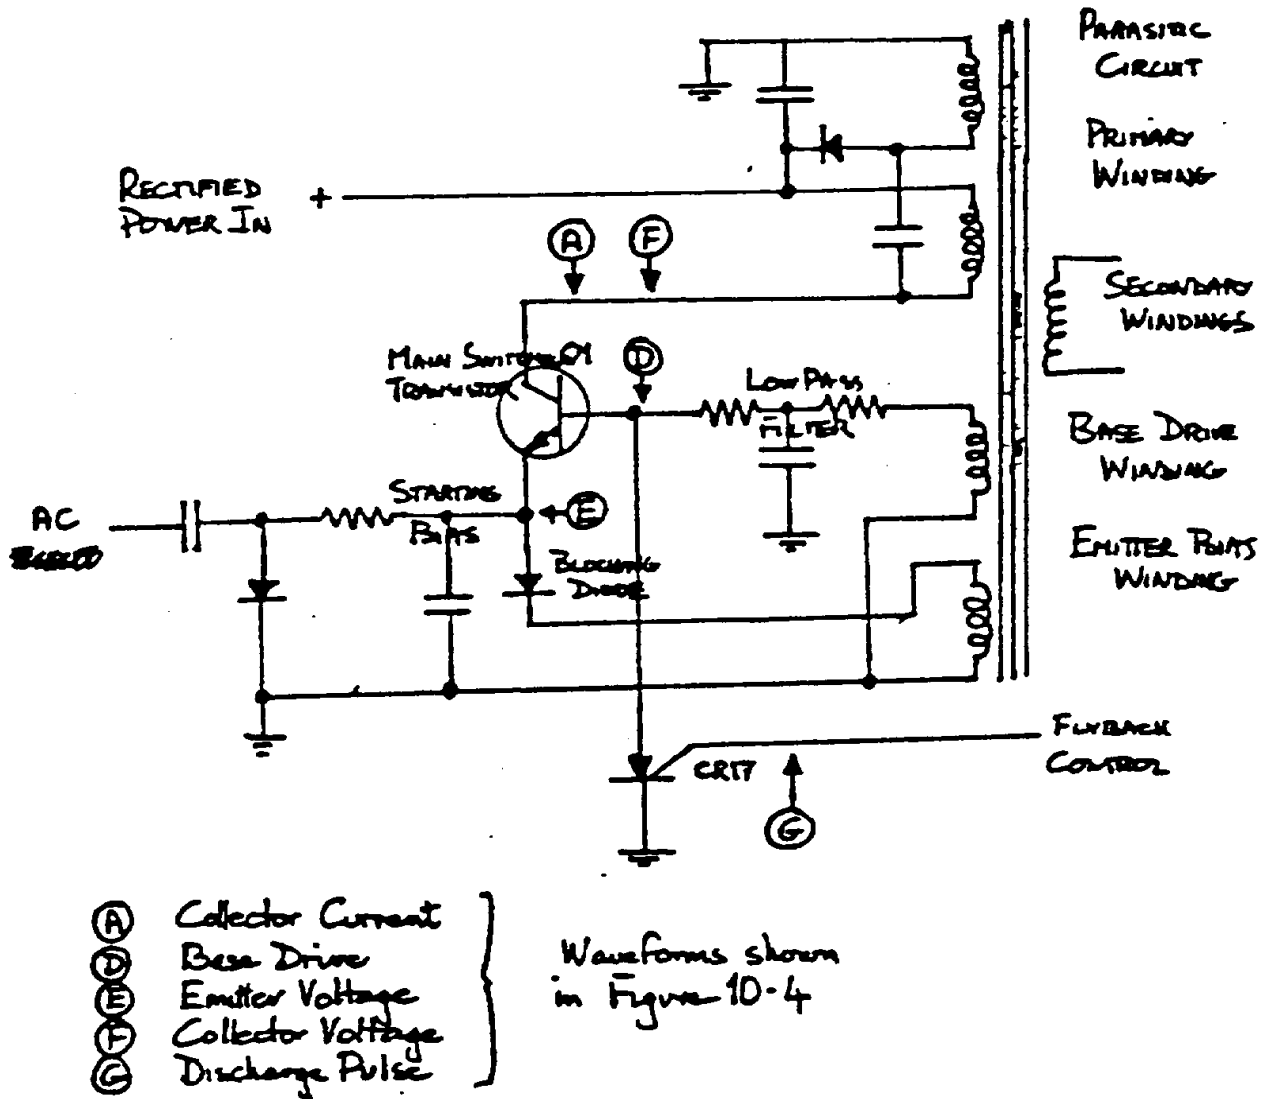 PARASITIC
CIRCUIT
PRIMARY
WINDING
RECTIFIED
POWER IN
+
A
F
SECONDARY
WINDINGS
MAIN SWITCHER Q1
TRANSISTOR
D
LOW PASS
FILTER
BASE DRIVE
WINDING
STARTING
BIAS
E
AC
BLOCKING
DIODE
EMITTER POINTS
WINDING
CR17
FLYBACK
CONTROL
G
A Collector Current
D Base Drive
E Emitter Voltage
F Collector Voltage
G Discharge Pulse
Waveforms shown
in Figure 10-4